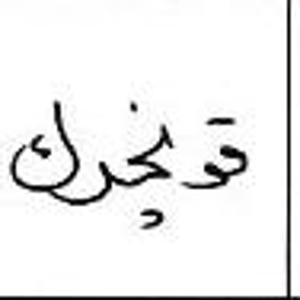 قو نچرك